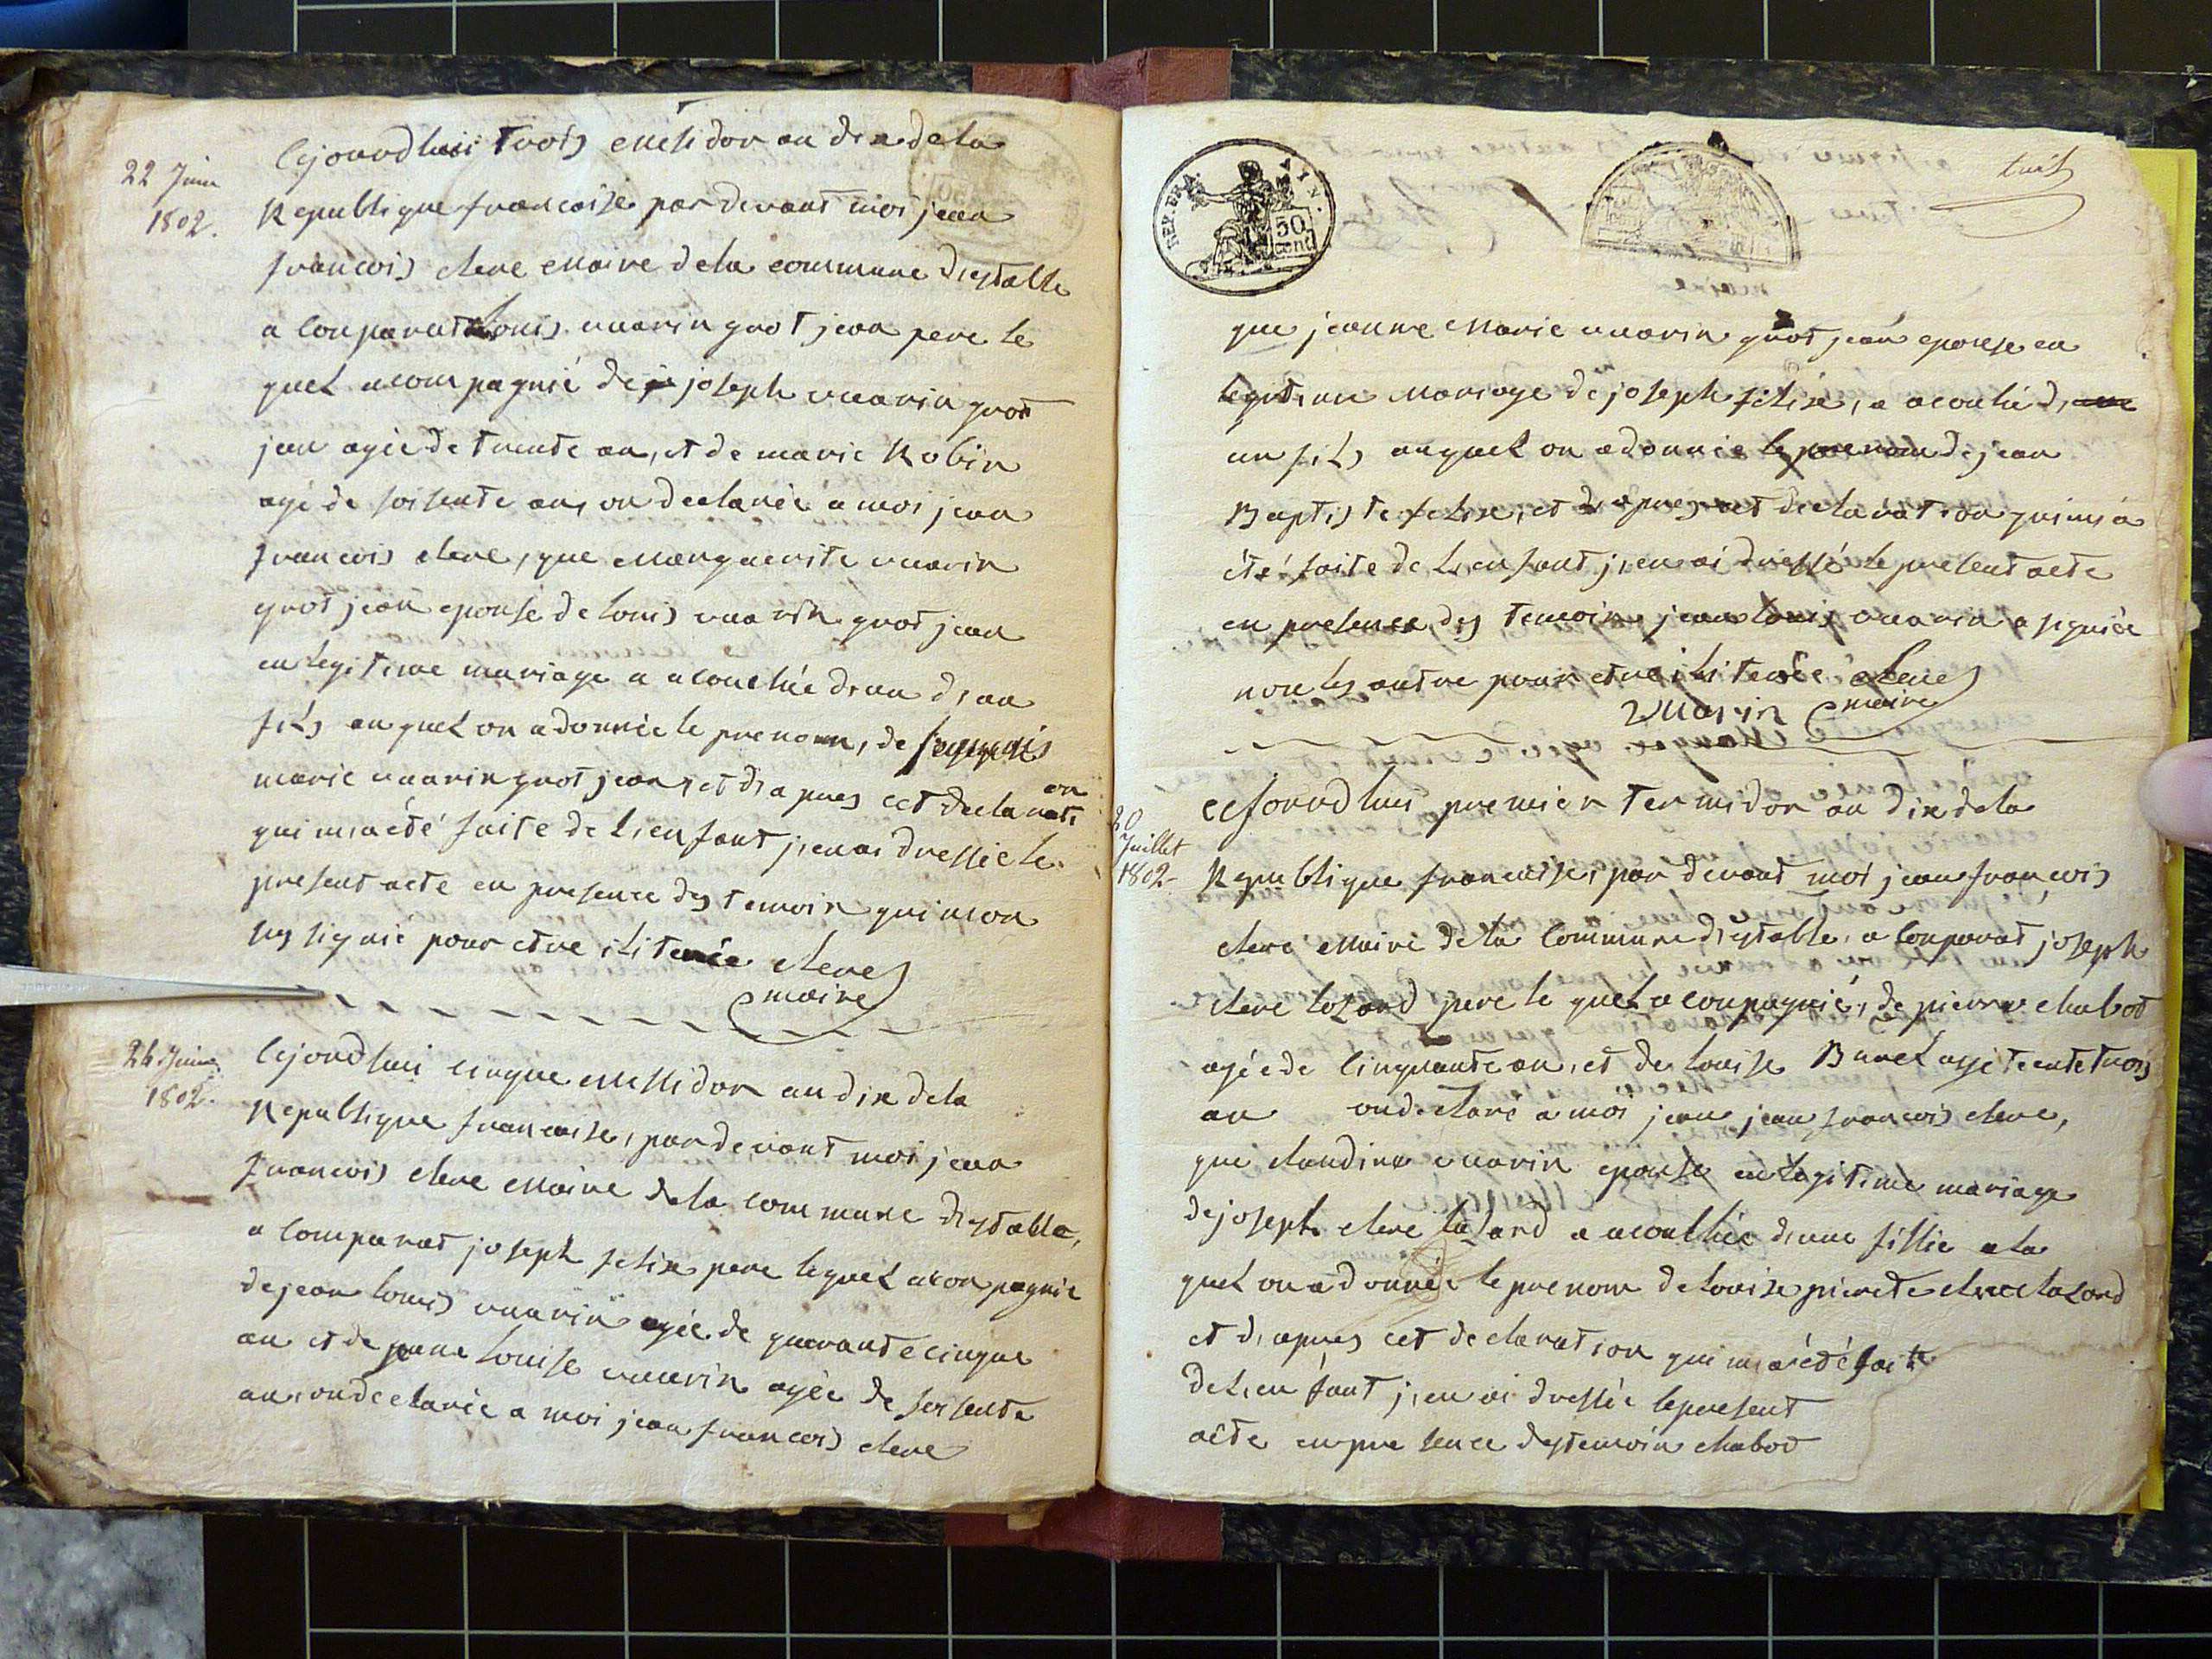 22 Juin
1802.
Cejourdhui trois messidor an dix dela
Republique francoise par devant moi jean
francois clerc maire dela commune d'estable
a conparut Louis vuarin grot jean pere le
quel acompagnié de joseph vuarin grot
jean agée de trente an, et de marie Robin
agé de soisente ans on declarée a moi jean
francois clerc, que Marguerite vuarin
grot jean epouse de louis vuarin grot jean
en legitime mariage a acouchée d'un d'un
fils au quel on a donnée le prenom, de francois
marie vuarin grot jean, et d'apres cet declarati
on
qui m'a été faite de l'enfant j'en ai dressée le
present acte en presence des temoin qui non
pas signié pour etre iliterée clerc
maire
24 Juin
1802.
Cejourdhui cinque Messidor an dix dela
Republique francoise, par devant moi jean
francois clerc Maire dela commune d'estable,
a comparut joseph felix pere lequel acon pagnié
de jean louis vuarin agée de quarante cinque
an et de jeane louise vuarin agée de soisente
an, on declarée a moi jean francois clerc
REP. FRA.
50
cent
huit
que jeanne Marie vuarin grot jean epouse en
legitime Mariage de joseph felix, a acouchée d'une
un fils auquel on a donnée le prenom de jean
Baptiste felix, et d'apres cet declaration qui m'a
été faite de l'enfant j'en ai dressé le present acte
en presence des temoin jean louis vuarin a signiée
non les autre pour etre iliterée clerc
Vuarin maire
20
Juillet
1802
Cejourdhui premier termidor an dix dela
Republique francoise, par devant moi jean francois
clerc Maire dela Commune d'estable, a conparut joseph
clerc lazard pere le quel aconpagnié, de pierre chabod
agée de cinquante an, et de louise Burel agé trente trois
an on declaré a moi jean jean francois clerc,
que claudine vuarin epouse en legitime mariage
de joseph clerc lazard a acouchée d'une fillie ala
quel on a donnée le prenom de louise pierrete clerc lazard
et d'apres cet declaration qui m'a été faite
de l'enfant j'en ai dressée le present
acte en pre sence des temoin chabod